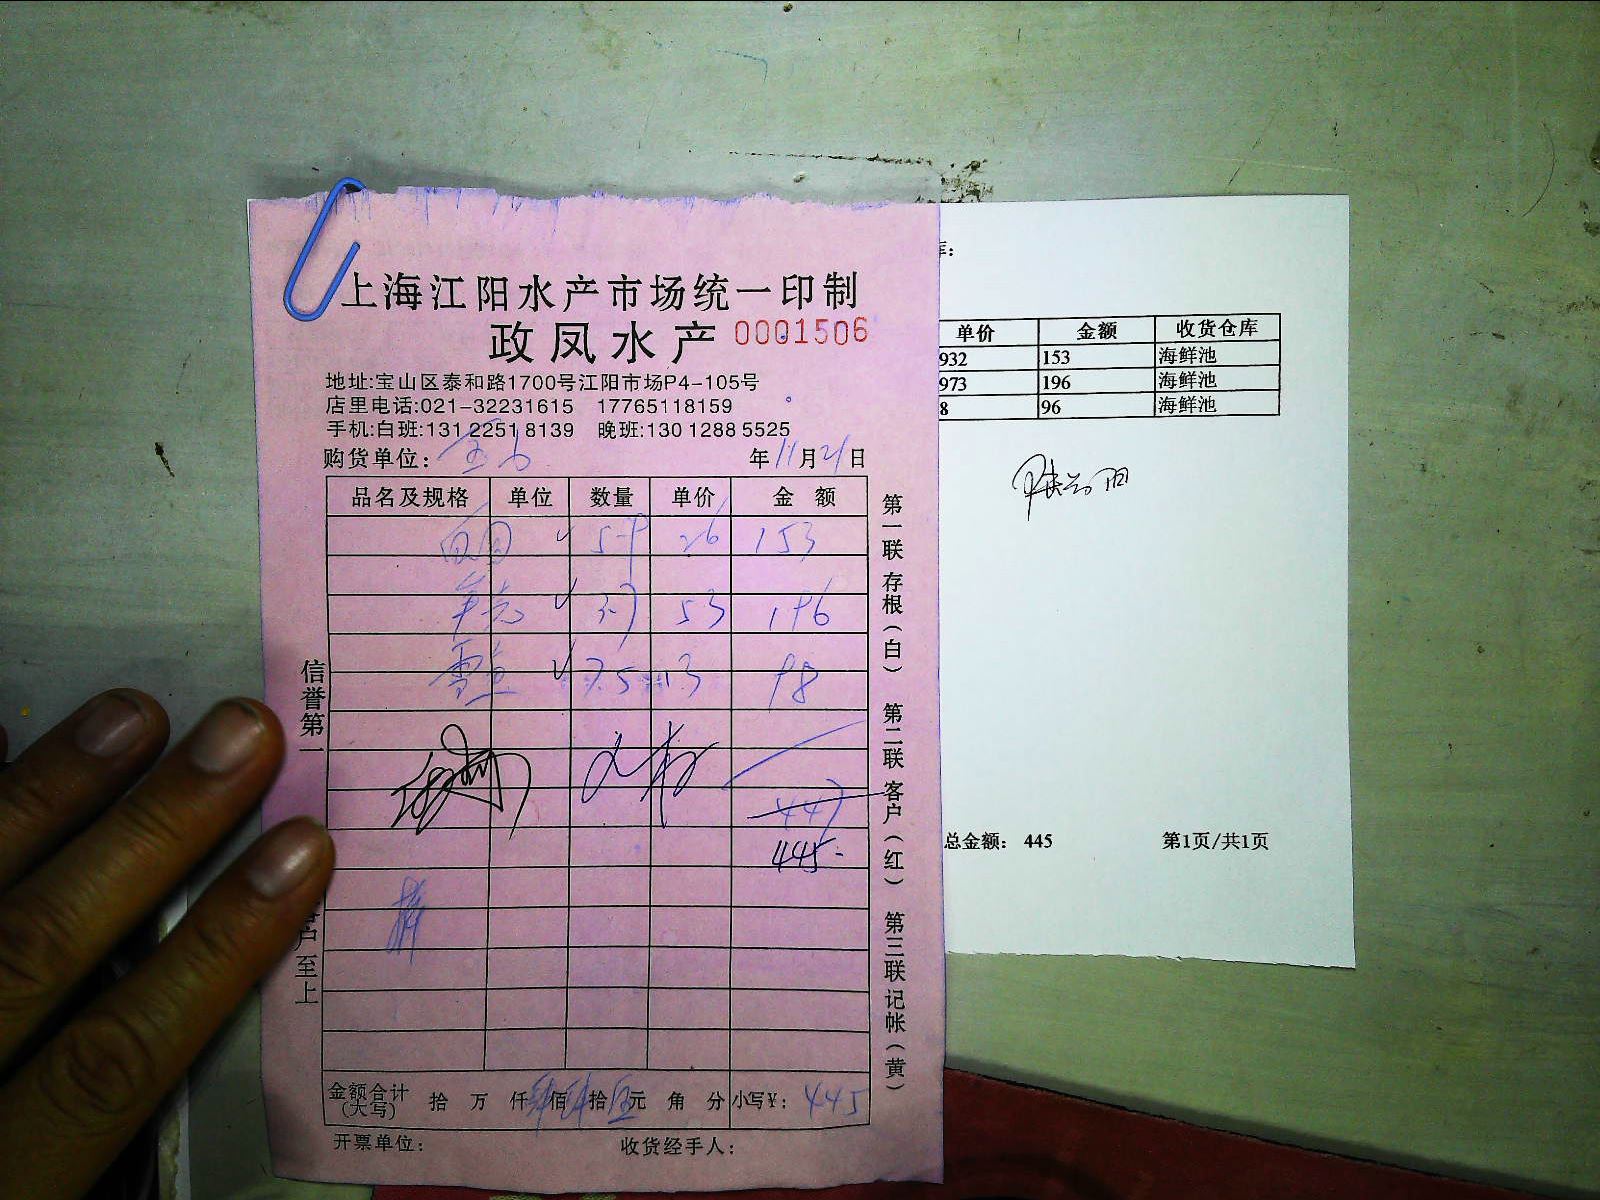 上海江阳水产市场统一印制
政凤水产 0001506
地址:宝山区泰和路1700号江阳市场P4-105号
店里电话:021-32231615 17765118159
手机:白班:131 2251 8139 晚班:130 1288 5525
购货单位: 年11月21日
品名及规格 单位 数量 单价 金额
26 153
53 196
7.5 13 98
447
445-
金额合计(大写) 拾 万 仟肆佰肆拾伍元 角 分 小写¥: 445
开票单位: 收货经手人:
信誉第一
户至上
第一联 存根(白) 第二联 客户(红) 第三联 记帐(黄)
库:
单价 金额 收货仓库
932 153 海鲜池
973 196 海鲜池
8 96 海鲜池
总金额: 445 第1页/共1页